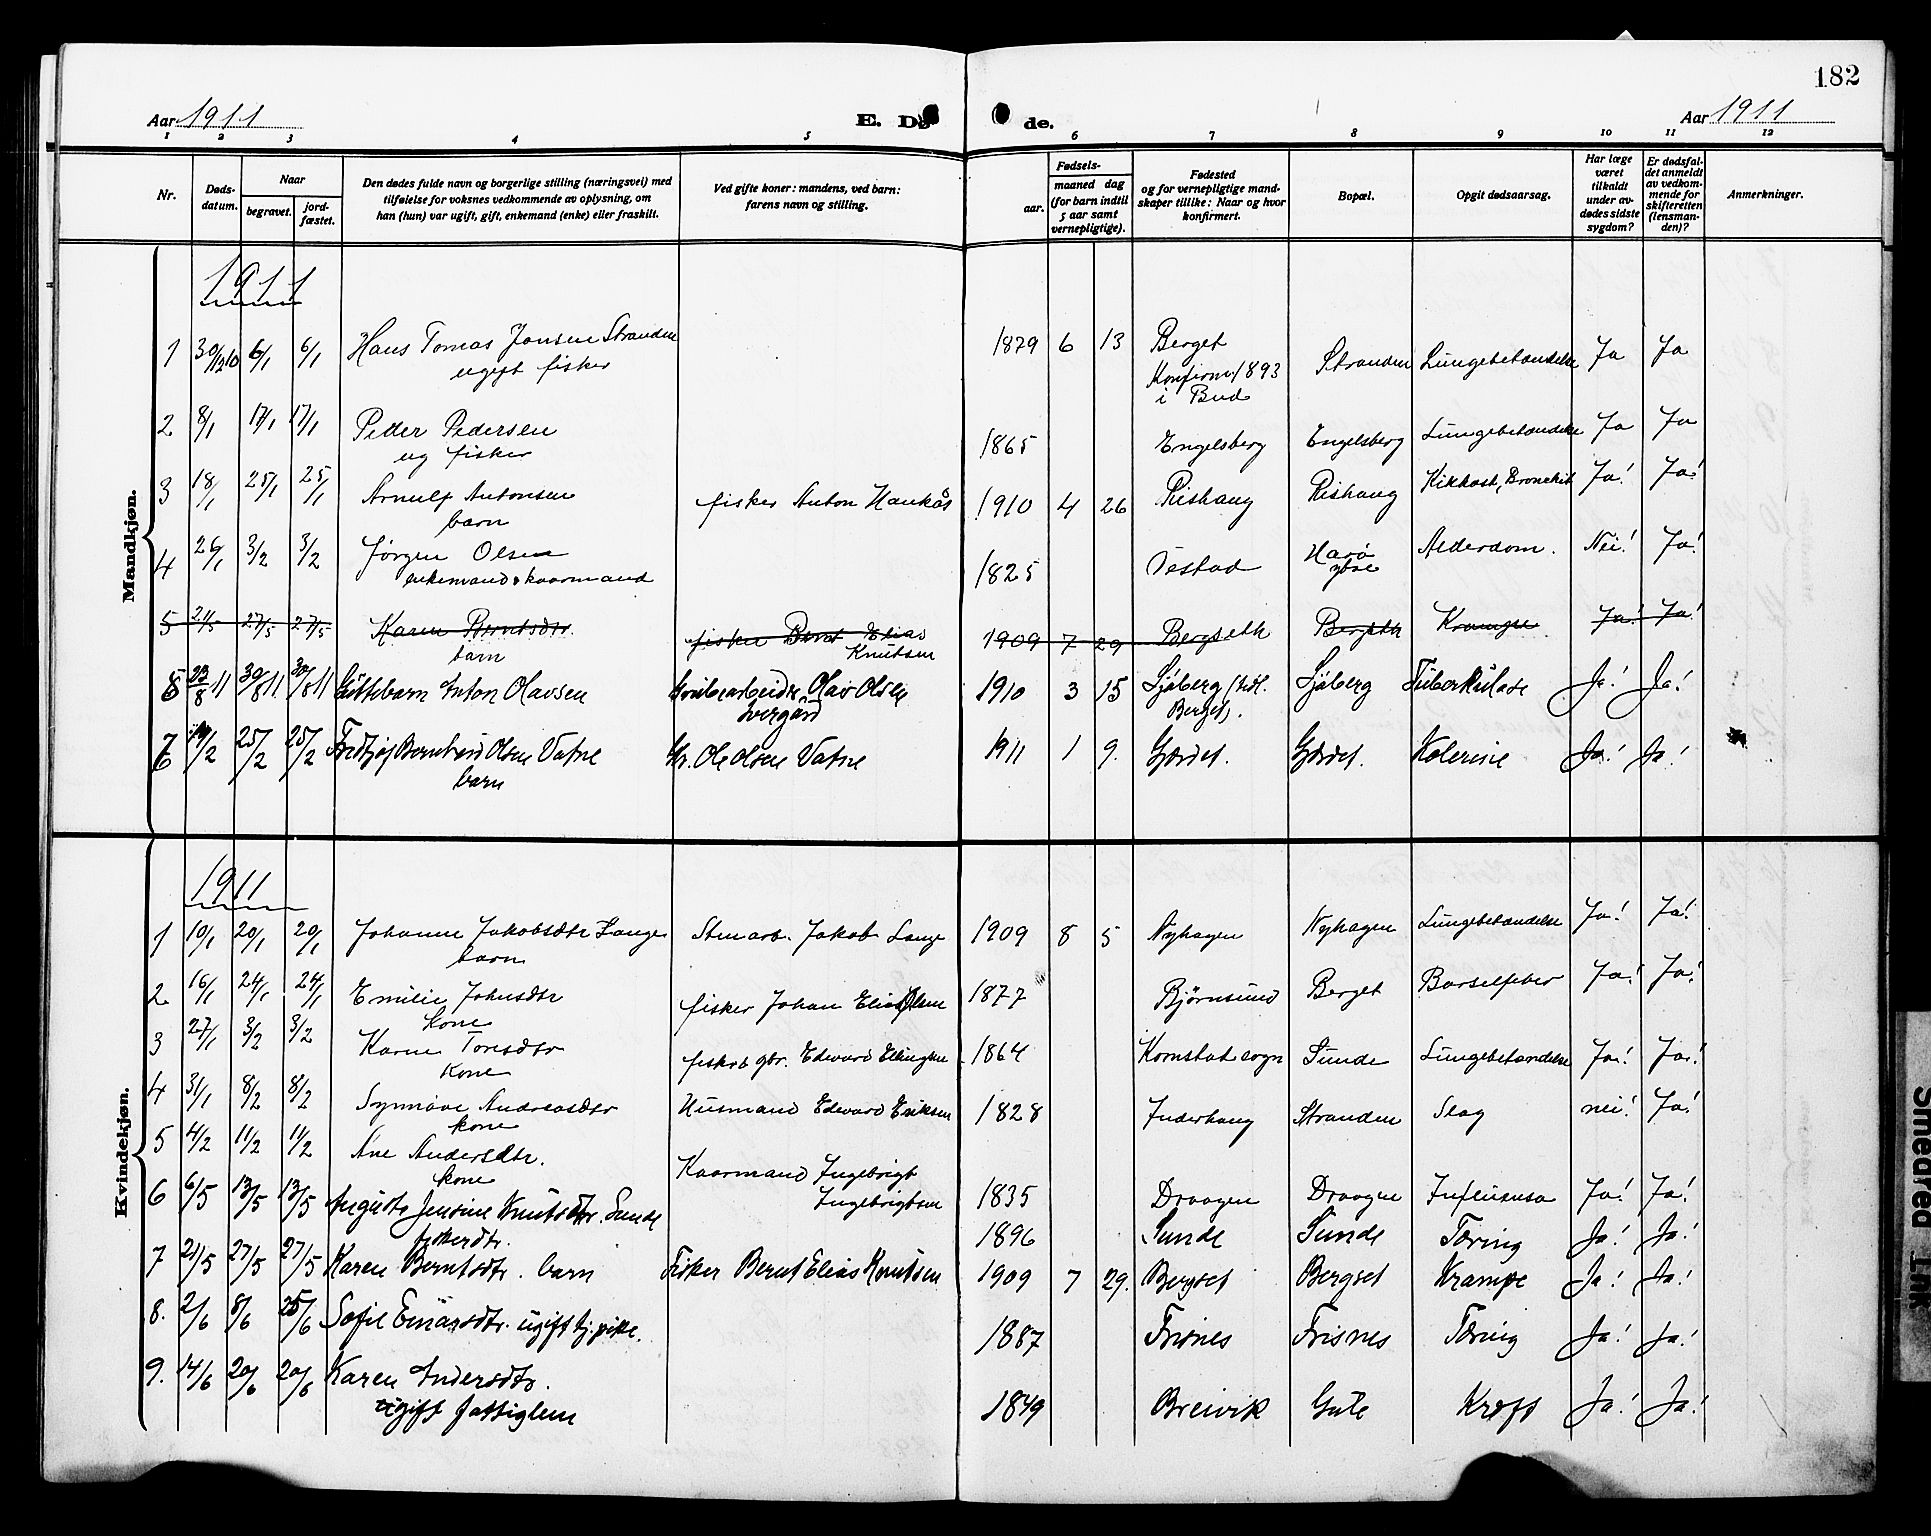 182
Aar 1911 E. Dø de. Aar 1911
1 2 3 4 5 6 7 8 9 10 11 12
Nr.
Døds-
datum.
Naar
begravet.
jord-
fæstet.
Den dødes fulde navn og borgerlige stilling (næringsvei) med
tilføielse for voksnes vedkommende av oplysning, om
han (hun) var ugift, gift, enkemand (enke) eller fraskilt.
Ved gifte koner: mandens, ved barn:
farens navn og stilling.
Fødsels-
aar.
maaned dag
(for barn indtil
5 aar samt
vernepligtige).
Fødested
og for vernepligtige mand-
skaper tillike: Naar og hvor
konfirmert.
Bopæl.
Opgit dødsaarsag.
Har læge
været
tilkaldt
under av-
dødes sidste
sygdom?
Er dødsfal-
det anmeldt
av vedkom-
mende for
skifteretten
(lensman-
den)?
Anmerkninger.
Mandkjøn.
1911
1 30/12 10 6/1 6/1 Hans Tomas Jonsen Stranden 1879 6 13 Berget Stranden Lungebetændelse Ja Ja
ugift fisker Konfirm. 1893
i Bud
2 8/1 17/1 17/1 Peder Pedersen 1865 Engelsberg Engelsberg Lungebetændelse Ja Ja
ug fisker
3 18/1 25/1 25/1 Arnulf Antonsen fisker Anton Haukås 1910 4 26 Rishaug Rishaug Kikhost, Bronchit Ja! Ja!
barn
4 26/1 3/2 3/2 Jørgen Olsen 1825 Vestad Harø Alderdom. Nei! Ja!
enkemand & kaarmand
5 21/5 27/5 27/5 Karen Berntsdtr. fisker Bernt Elias 1909 7 29 Bergseth Bergseth Krampe Ja! Ja!
barn Knutsen
6 23/8 11 30/8 11 30/8 11 Gittebarn Anton Olavsen Olav Olsen 1910 3 15 Sjåberg Sjåberg Tuberkulose Ja! Ja!
Berget).
7 25/2 25/2 Fridtjof Bernhard Olsen Vatne Gr. Ole Olsen Vatne 1911 1 9. Gjærdet. Gjærdet. Kolerine Ja! Ja!
barn
Kvindekjøn.
1911
1 10/1 20/1 20/1 Johanne Jakobsdtr Lange Stenarb. Jakob Lange 1909 8 5 Nyhagen Nyhagen Lungebetændelse Ja! Ja!
barn
2 16/1 24/1 24/1 Emilie Johnsdtr fisker Johan Elias Olsen 1877 Bjørnsund Berget Barselfeber Ja! Ja!
kone
3 27/1 3/2 3/2 Karen Toresdtr fisker & gbr. Edvard Ellingsen 1864 Kornstad sogn Sunde Lungebetændelse Ja! Ja!
kone
4 31/1 8/2 8/2 Synnøve Andreasdtr Husmand Edvard Eriksen 1828 Inderhaug Stranden Slag nei! Ja!
kone
5 4/2 11/2 11/2 Ane Andersdtr. Kaarmand Ingebrigt
kone Ingebrigtsen 1835 Draagen Draagen Influensa Ja! Ja!
6 6/5 13/5 13/5 Augusta Jensine Knutsdtr. Sunde 1896 Sunde Sunde Tæring Ja! Ja!
fiskerdtr.
7 21/5 27/5 27/5 Karen Berntsdtr. barn Fisker Bernt Elias Knutsen 1909 7 29. Bergset Bergset Krampe Ja! Ja!
8. 2/6 8/6 25/6 Sofie Einarsdtr. ugift tj. pike. 1887 Frisnes Frisnes Tæring Ja! Ja!
9. 14/6 20/6 20/6 Karen Andersdtr.
ugift fattiglem 1849 Breivik Gule Kræft Ja! Ja!
Smeared Ink